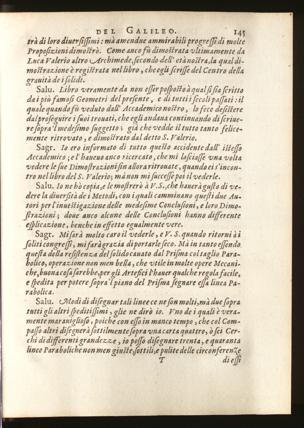 DEL GALILEO. 145
trà di loro diversissimi: mà amendue ammirabili progressi di molte
Proposizioni dimostrò. Come anco fù dimostrata ultimamente da
Luca Valerio altro Archimede, secondo dell' età nostra, la qual di-
mostrazione è registrata nel libro, che egli scrisse del Centro della
gravità de i solidi.
Salu. Libro veramente da non esser posposto à qual si sia scritto
da i più famosi Geometri del presente, e di tutti i secoli passati: il
quale quando fù veduto dall' Accademico nostro, lo fece desistere
dal proseguire i suoi trovati, che egli andava continuando di scrive-
re sopra 'l medesimo suggetto; già che vedde il tutto tanto felice-
mente ritrovato, e dimostrato dal detto S. Valerio.
Sagr. Io ero informato di tutto questo accidente dall' istesso
Accademico; e l' havevo anco ricercato, che mi lasciasse una volta
vedere le sue Dimostrazioni sin allora ritrovate, quando ei s'incon-
trò nel libro del S. Valerio; mà non mi successe poi il vederle.
Salu. Io ne hò copia, e le mostrerò à V.S., che haverà gusto di ve-
dere la diversità de i Metodi, con i quali camminano questi due Au-
tori per l'investigazione delle medesime Conclusioni, e loro Dimo-
strazioni; dove anco alcune delle Conclusioni hanno differente
esplicazione, benche in effetto egualmente vere.
Sagr. Mi sarà molto caro il vederle, e V.S. quando ritorni à i
soliti congressi, mi farà grazia di portarle seco. Mà in tanto essendo
questa della resistenza del solido cavato dal Prisma col taglio Para-
bolico, operazione non men bella, che utile in molte opere Mecani-
che, buona cosa sarebbe, per gli Artefici l' haver qualche regola facile,
e spedita per potere sopra 'l piano del Prisma segnare essa linea Pa-
rabolica.
Salu. Modi di disegnar tali linee ce ne son molti, mà due sopra
tutti gli altri speditissimi, glie ne dirò io. Uno de i quali è vera-
mente maraviglioso, poiche con esso in manco tempo, che col Com-
passo altri disegnerà sottilmente sopra una carta quattro, ò sei Cer-
chi di differenti grandezze, io posso disegnare trenta, e quaranta
linee Paraboliche non men giuste sottili, e pulite delle circonferenze
T di essi